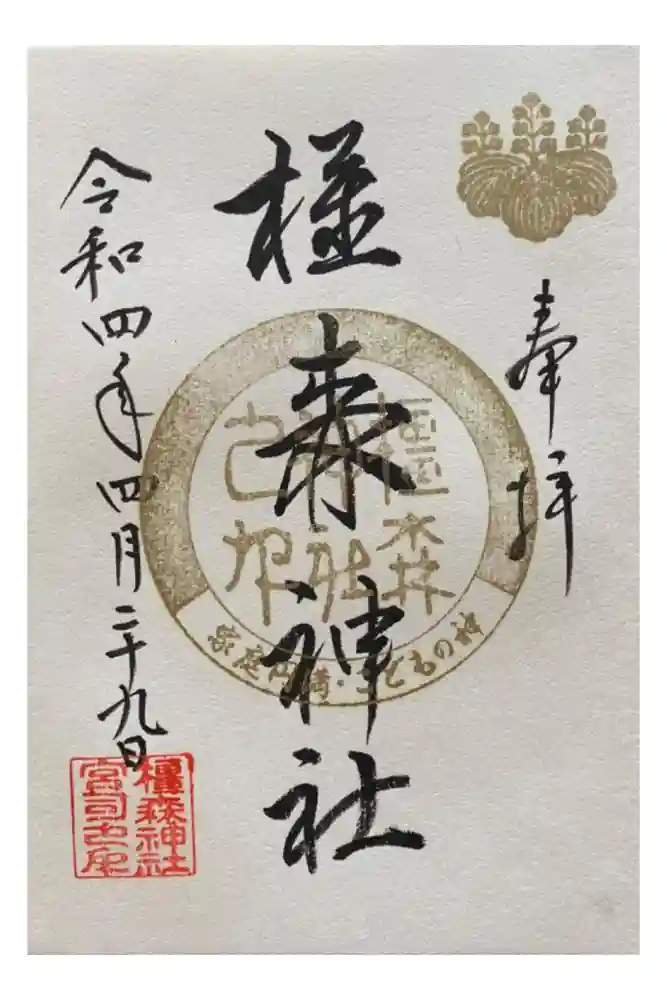 奉拝
橿森神社
令和四年四月二十九日
橿森
神社
之印
家庭円満・こどもの神
橿森神社
宮司之印